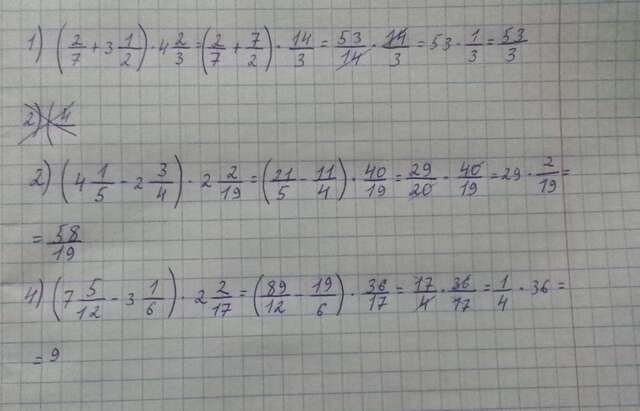 1) (2/7 + 3 1/2) · 4 2/3 = (2/7 + 7/2) · 14/3 = 53/14 · 14/3 = 53 · 1/3 = 53/3
2) (4
2) (4 1/5 - 2 3/4) · 2 2/19 = (21/5 - 11/4) · 40/19 = 29/20 · 40/19 = 29 · 2/19 =
= 58/19
4) (7 5/12 - 3 1/6) · 2 2/17 = (89/12 - 19/6) · 36/17 = 17/4 · 36/17 = 1/4 · 36 =
= 9